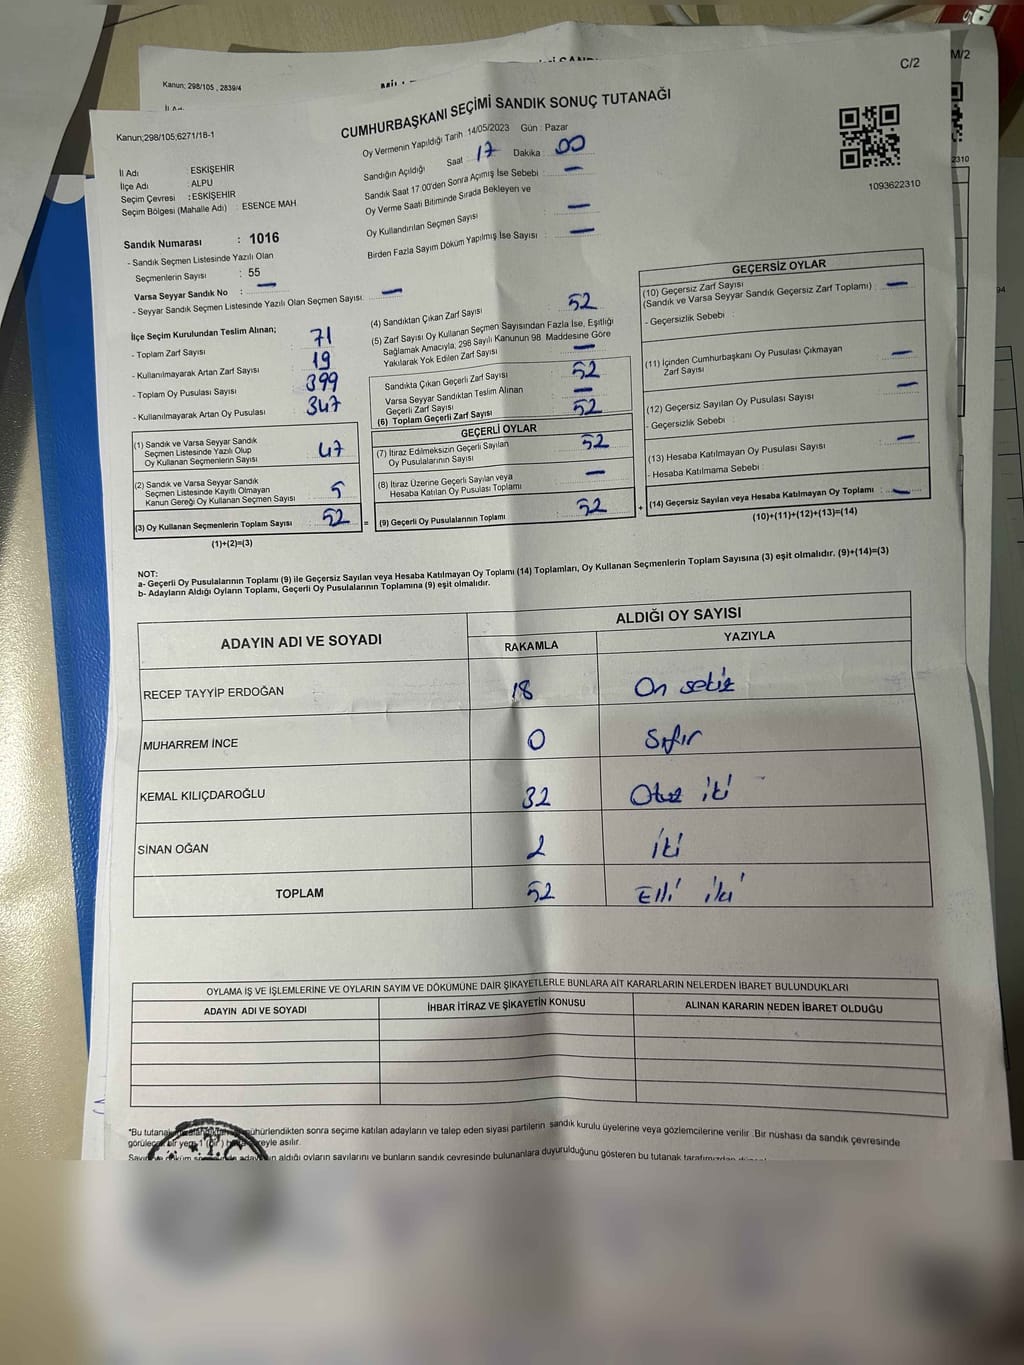 Kanun; 298/105 , 2839/4
M/2
C/2
Kanun;298/105;6271/16-1
CUMHURBAŞKANI SEÇİMİ SANDIK SONUÇ TUTANAĞI
Oy Vermenin Yapıldığı Tarih 14/05/2023 Gün : Pazar
Sandığın Açıldığı Saat 17 Dakika 00
Sandık Saat 17 00'den Sonra Açımış İse Sebebi : —
Oy Verme Saati Bitiminde Sırada Bekleyen ve
Oy Kullandırılan Seçmen Sayısı : —
Birden Fazla Sayım Döküm Yapılmış İse Sayısı : —
1093622310
2310
İl Adı : ESKİŞEHİR
İlçe Adı : ALPU
Seçim Çevresi : ESKİŞEHİR
Seçim Bölgesi (Mahalle Adı) : ESENCE MAH
Sandık Numarası : 1016
- Sandık Seçmen Listesinde Yazılı Olan
Seçmenlerin Sayısı : 55
Varsa Seyyar Sandık No : —
- Seyyar Sandık Seçmen Listesinde Yazılı Olan Seçmen Sayısı. —
İlçe Seçim Kurulundan Teslim Alınan;
- Toplam Zarf Sayısı : 71
- Kullanılmayarak Artan Zarf Sayısı : 19
- Toplam Oy Pusulası Sayısı : 399
- Kullanılmayarak Artan Oy Pusulası : 347
(1) Sandık ve Varsa Seyyar Sandık
Seçmen Listesinde Yazılı Olup
Oy Kullanan Seçmenlerin Sayısı 47
(2) Sandık ve Varsa Seyyar Sandık
Seçmen Listesinde Kayıtlı Olmayan
Kanun Gereği Oy Kullanan Seçmen Sayısı 5
(3) Oy Kullanan Seçmenlerin Toplam Sayısı : 52 =
(1)+(2)=(3)
(4) Sandıktan Çıkan Zarf Sayısı 52
(5) Zarf Sayısı Oy Kullanan Seçmen Sayısından Fazla İse, Eşitliği
Sağlamak Amacıyla, 298 Sayılı Kanunun 98. Maddesine Göre
Yakılarak Yok Edilen Zarf Sayısı —
Sandıkta Çıkan Geçerli Zarf Sayısı : 52
Varsa Seyyar Sandıktan Teslim Alınan
Geçerli Zarf Sayısı —
(6) Toplam Geçerli Zarf Sayısı 52
GEÇERLİ OYLAR
(7) İtiraz Edilmeksizin Geçerli Sayılan
Oy Pusulalarının Sayısı : 52
(8) İtiraz Üzerine Geçerli Sayılan veya
Hesaba Katılan Oy Pusulası Toplamı —
(9) Geçerli Oy Pusulalarının Toplamı 52 +
GEÇERSİZ OYLAR
(10) Geçersiz Zarf Sayısı
(Sandık ve Varsa Seyyar Sandık Geçersiz Zarf Toplamı) : —
- Geçersizlik Sebebi :
(11) İçinden Cumhurbaşkanı Oy Pusulası Çıkmayan
Zarf Sayısı —
(12) Geçersiz Sayılan Oy Pusulası Sayısı —
- Geçersizlik Sebebi :
(13) Hesaba Katılmayan Oy Pusulası Sayısı —
- Hesaba Katılmama Sebebi :
(14) Geçersiz Sayılan veya Hesaba Katılmayan Oy Toplamı : —
(10)+(11)+(12)+(13)=(14)
NOT:
a- Geçerli Oy Pusulalarının Toplamı (9) ile Geçersiz Sayılan veya Hesaba Katılmayan Oy Toplamı (14) Toplamları, Oy Kullanan Seçmenlerin Toplam Sayısına (3) eşit olmalıdır. (9)+(14)=(3)
b- Adayların Aldığı Oyların Toplamı, Geçerli Oy Pusulalarının Toplamına (9) eşit olmalıdır.
ADAYIN ADI VE SOYADI
ALDIĞI OY SAYISI
RAKAMLA YAZIYLA
RECEP TAYYİP ERDOĞAN 18 On sekiz
MUHARREM İNCE 0 Sıfır
KEMAL KILIÇDAROĞLU 32 Otuz iki
SİNAN OĞAN 2 iki
TOPLAM 52 Elli iki
OYLAMA İŞ VE İŞLEMLERİNE VE OYLARIN SAYIM VE DÖKÜMÜNE DAİR ŞİKAYETLERLE BUNLARA AİT KARARLARIN NELERDEN İBARET BULUNDUKLARI
ADAYIN ADI VE SOYADI İHBAR İTİRAZ VE ŞİKAYETİN KONUSU ALINAN KARARIN NEDEN İBARET OLDUĞU
*Bu tutanak mühürlendikten sonra seçime katılan adayların ve talep eden siyasi partilerin sandık kurulu üyelerine veya gözlemcilerine verilir. Bir nüshası da sandık çevresinde
görülecek bir yere 1 (bir) hafta süreyle asılır.
aldığı oyların sayılarını ve bunların sandık çevresinde bulunanlara duyurulduğunu gösteren bu tutanak tarafımızdan